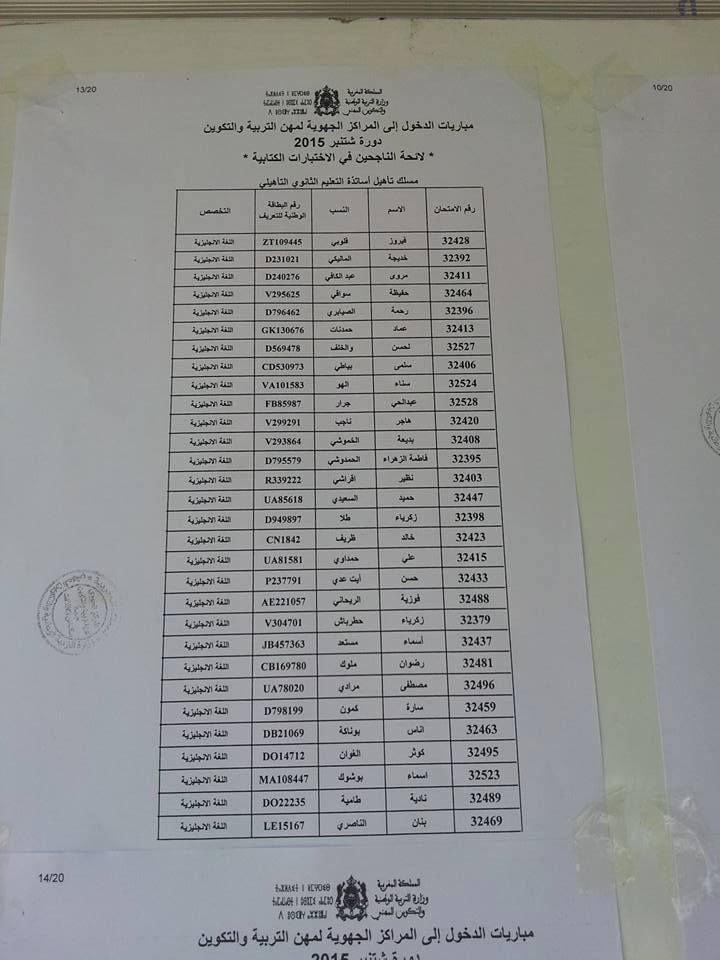 13/20
10/20
المملكة المغربية
وزارة التربية الوطنية
والتكوين المهني
مباريات الدخول إلى المراكز الجهوية لمهن التربية والتكوين
دورة شتنبر 2015
* لائحة الناجحين في الاختبارات الكتابية *
مسلك تأهيل أساتذة التعليم الثانوي التأهيلي
رقم الامتحان الاسم النسب رقم البطاقة الوطنية للتعريف التخصص
32428 فيروز قلوبي ZT109445 اللغة الانجليزية
32392 خديجة الماليكي D231021 اللغة الانجليزية
32411 مروى عبد الكافي D240276 اللغة الانجليزية
32464 حفيظة سواقي V295625 اللغة الانجليزية
32396 رحمة الصيابري D796462 اللغة الانجليزية
32413 عماد حمدنات GK130676 اللغة الانجليزية
32527 لحسن والخلف D569478 اللغة الانجليزية
32406 سلمى بياطي CD530973 اللغة الانجليزية
32524 سناء الهو VA101583 اللغة الانجليزية
32528 عبدالحي جرار FB85987 اللغة الانجليزية
32420 هاجر ناجب V299291 اللغة الانجليزية
32408 بديعة الخموشي V293864 اللغة الانجليزية
32395 فاطمة الزهراء الحمدوشي D795579 اللغة الانجليزية
32403 نظير افراشي R339222 اللغة الانجليزية
32447 حميد السعيدي UA85618 اللغة الانجليزية
32398 زكرياء طلا D949897 اللغة الانجليزية
32423 خالد ظريف CN1842 اللغة الانجليزية
32415 علي حمداوي UA81581 اللغة الانجليزية
32433 حسن أيت عدي P237791 اللغة الانجليزية
32488 فوزية الريحاني AE221057 اللغة الانجليزية
32379 زكرياء حطرباش V304701 اللغة الانجليزية
32437 أسماء مستعد JB457363 اللغة الانجليزية
32481 رضوان ملوك CB169780 اللغة الانجليزية
32496 مصطفى مرادي UA78020 اللغة الانجليزية
32459 سارة كمون D798199 اللغة الانجليزية
32463 اناس بوناكة DB21069 اللغة الانجليزية
32495 كوثر الغوان DO14712 اللغة الانجليزية
32523 اسماء بوشوك MA108447 اللغة الانجليزية
32489 نادية طامية DO22235 اللغة الانجليزية
32469 بنان الناصري LE15167 اللغة الانجليزية
14/20
المملكة المغربية
وزارة التربية الوطنية
والتكوين المهني
مباريات الدخول إلى المراكز الجهوية لمهن التربية والتكوين
دورة شتنبر 2015